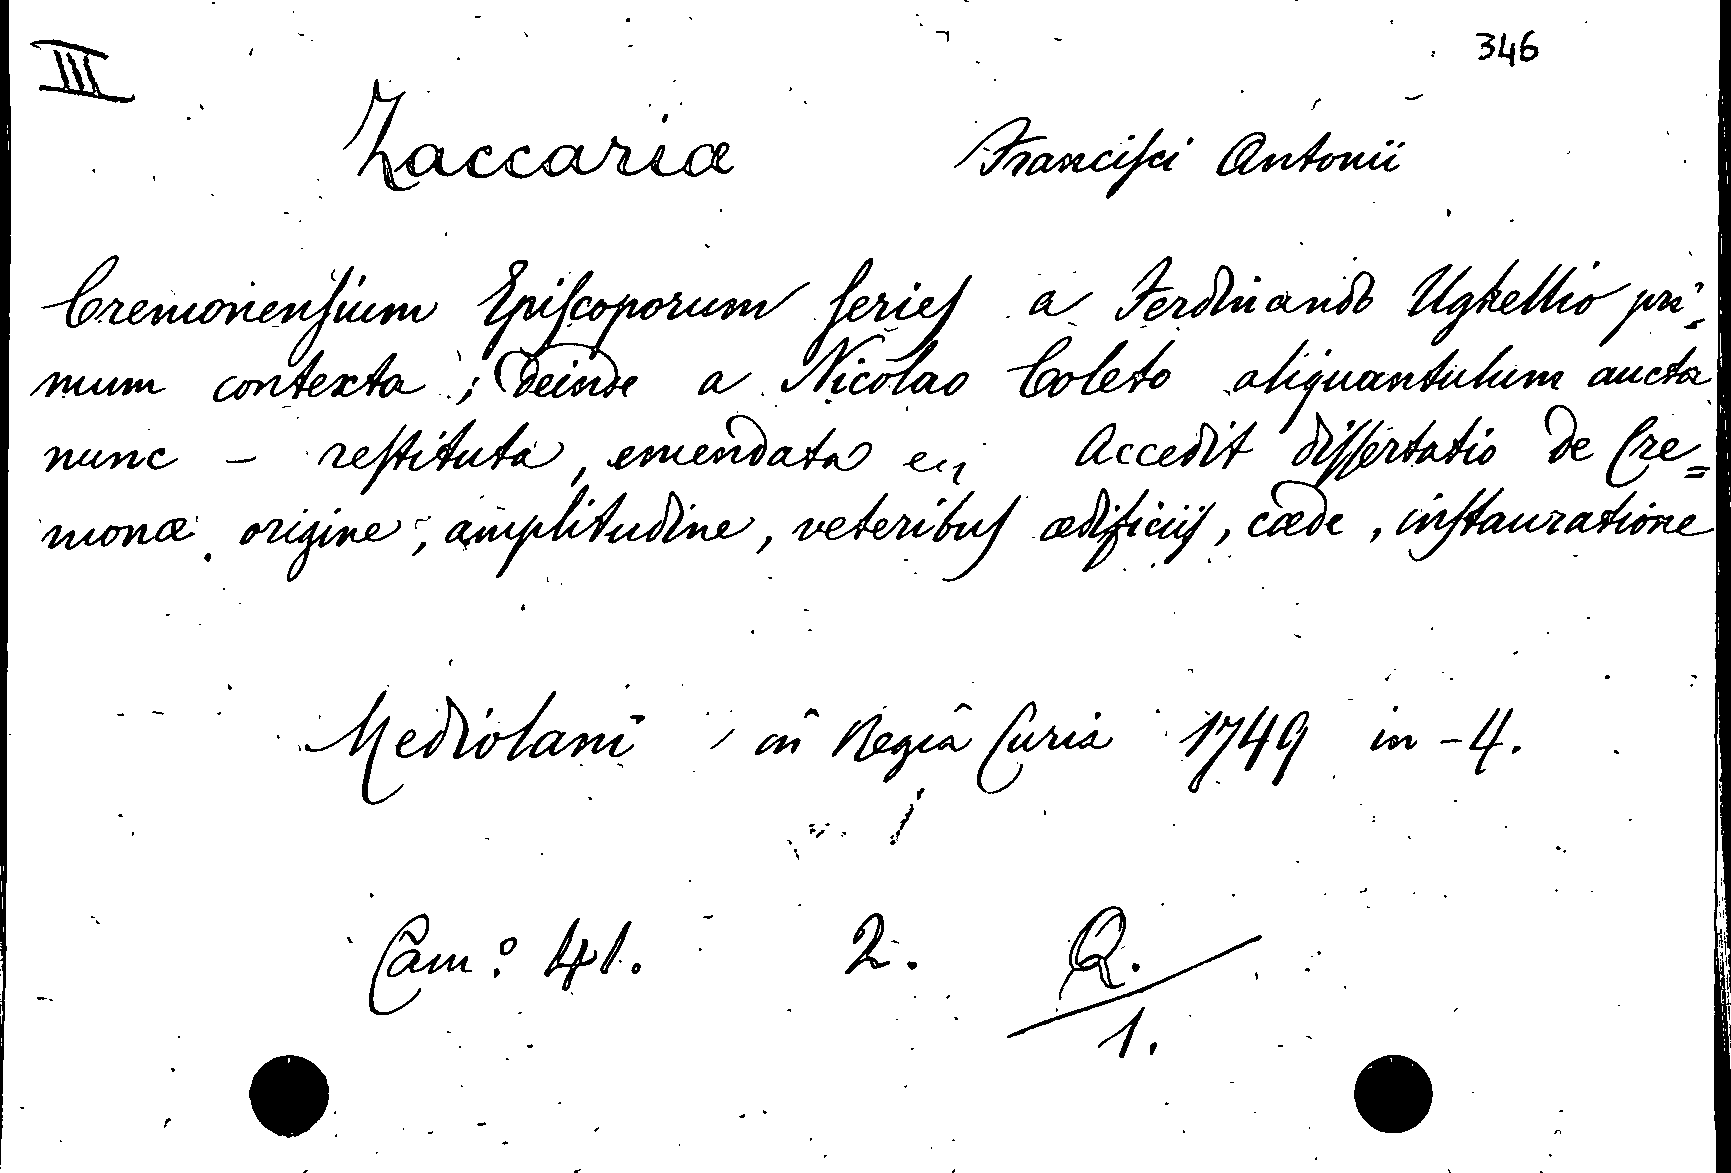 III 346
Zaccariæ Franciſci Antonii
Cremonenſium Epiſcoporum ſerieſ a Ferdinando Ughellio pri=
mum contexta; deinde a Nicolao Coleto aliquantulum aucta
nunc – reſtituta, emendata Accedit diſſertatio de Cre=
monæ origine, amplitudine, veteribuſ ædificiiſ, cæde, inſtauratione
Mediolani in Regiâ Curia 1749 in – 4.
Cam: 41. 2. Q.
1.